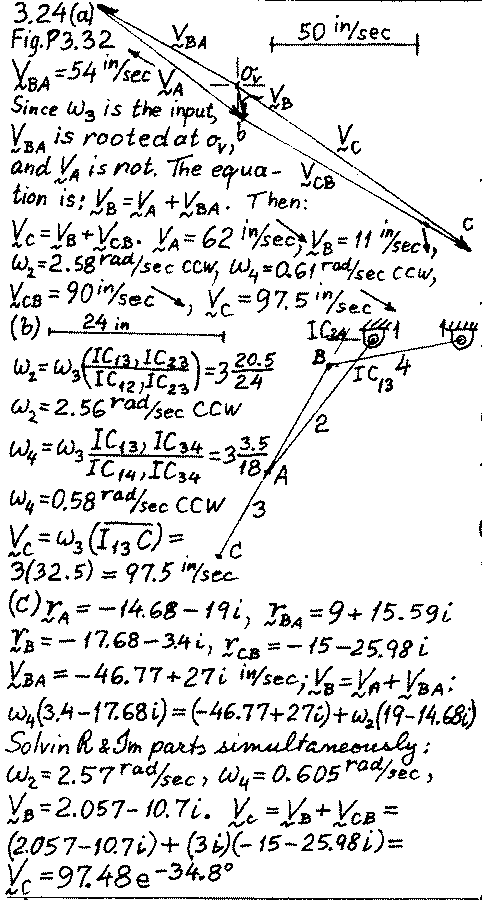 3.24(a)
V_BA
50 in/sec
Fig.P3.32
V_BA = 54 in/sec V_A
O_v
V_B
Since ω3 is the input,
b
V_BA is rooted at o_v,
V_C
and V_A is not. The equa-
V_CB
tion is: V_B = V_A + V_BA. Then:
C
V_C = V_B + V_CB. V_A = 62 in/sec, V_B = 11 in/sec,
ω2 = 2.58 rad/sec CCW, ω4 = 0.61 rad/sec CCW,
V_CB = 90 in/sec ↘, V_C = 97.5 in/sec ↘
(b) 24 in
IC24
1
1
B
IC13 4
ω2 = ω3 (IC13, IC23 / IC12, IC23) = 3 20.5/24
2
ω2 = 2.56 rad/sec CCW
ω4 = ω3 IC13, IC34 / IC14, IC34 = 3 3.5/18
A
ω4 = 0.58 rad/sec CCW
3
V_C = ω3 (I13 C) =
C
3(32.5) = 97.5 in/sec
(C) r_A = -14.68 - 19i, r_BA = 9 + 15.59i
r_B = -17.68 - 3.4i, r_CB = -15 - 25.98i
V_BA = -46.77 + 27i in/sec; V_B = V_A + V_BA:
ω4(3.4 - 17.68i) = (-46.77 + 27i) + ω2(19 - 14.68i)
Solvin R & Im parts simultaneously:
ω2 = 2.57 rad/sec, ω4 = 0.605 rad/sec,
V_B = 2.057 - 10.7i. V_C = V_B + V_CB =
(2.057 - 10.7i) + (3i)(-15 - 25.98i) =
V_C = 97.48e^-34.8°